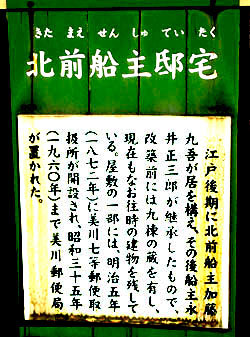 きたまえせんしゅていたく
北前船主邸宅
江戸後期に北前船主加藤
九吾が居を構え、その後船主永
井正三郎が継承したもので、
改築前には九棟の蔵を有し、
現在もなお往時の建物を残して
いる。屋敷の一部には、明治五年
(一八七二年)に美川七等郵便取
扱所が開設され、昭和三十五年
(一九六〇年)まで美川郵便局
が置かれた。